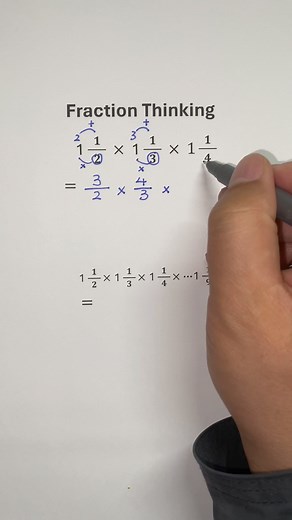 Fraction Thinking
2 + 3 +
1 1/2 × 1 1/3 × 1 1/4
× ×
= 3/2 × 4/3 ×
1 1/2 × 1 1/3 × 1 1/4 × ⋯ 1
=